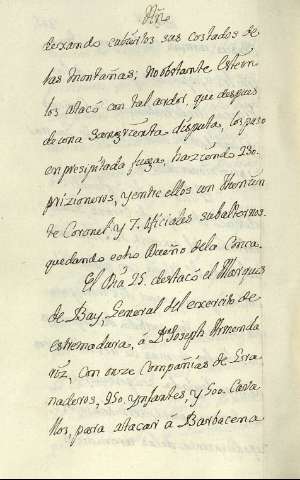 dexando cubiertos sus costados de
las Montañas; no obstante Estèvan
los atacó con tal ardor, que despues
de una sangrienta disputa, los puso
en presipitada fuga, haziendo 250.
prizioneros, y entre ellos un thenien
te Coronel y 7. oficiales subalternos.
quedando echo Dueño de la Conca.
El dia 25 destacó el Marques
de Bay, General del exercito de
estremadura, á Dn. Joseph Armenda
riz, con onze Compañias de Gra
naderos, 950. ynfantes, y 500. Cava
llos, para atacar á Barbacena